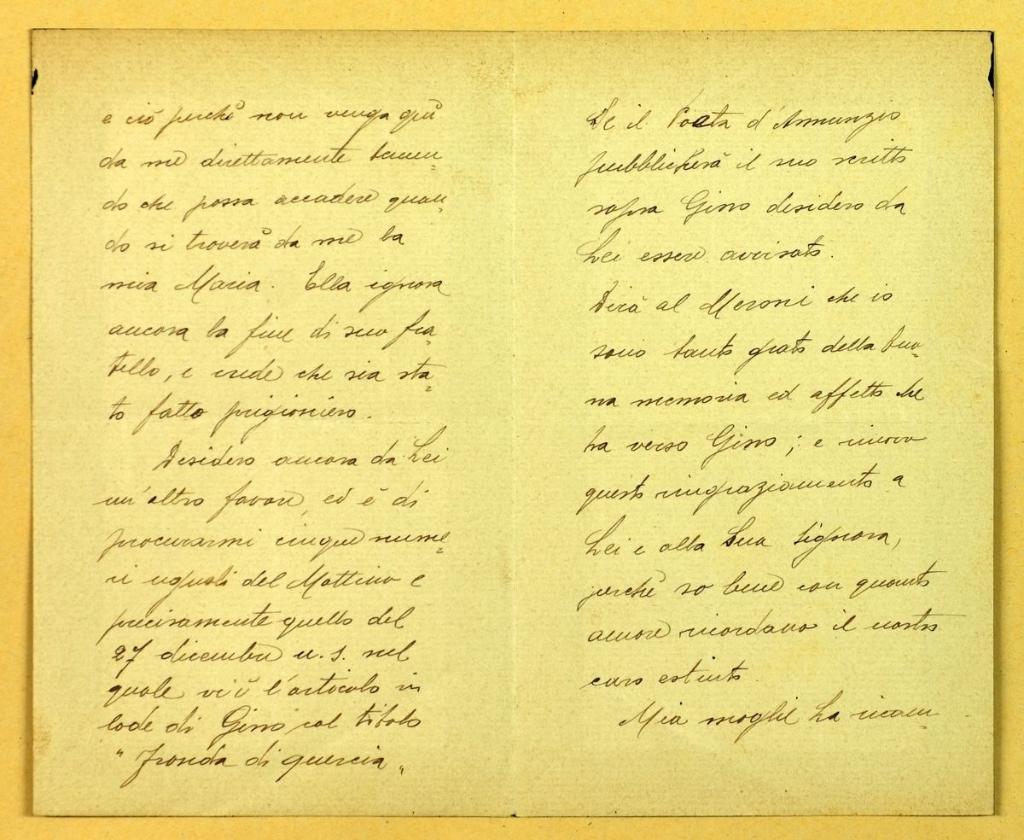 e ciò perchè non venga qui
da me direttamente temen-
do che possa accadere quan-
do si troverà da me la
mia Maria. Ella ignora
ancora la fine di suo fra-
tello, e crede che sia sta-
to fatto prigioniero.
Desidero ancora da Lei
un'altro favore, ed è di
procurarmi cinque nume-
ri uguali del Mattino e
precisamente quello del
27 dicembre u. s. nel
quale vi è l'articolo in
lode di Gino col titolo
"Fronda di quercia"
Se il Poeta d'Annunzio
pubblicherà il suo scritto
sopra Gino desidero da
Lei essere avvisato.
Dirà al Meroni che io
sono tanto grato della buo-
na memoria ed affetto che
ha verso Gino; e nuovo
questo ringraziamento a
Lei e alla Sua Signora,
perchè so bene con quanto
amore ricordano il nostro
caro estinto.
Mia moglie ha ricam-